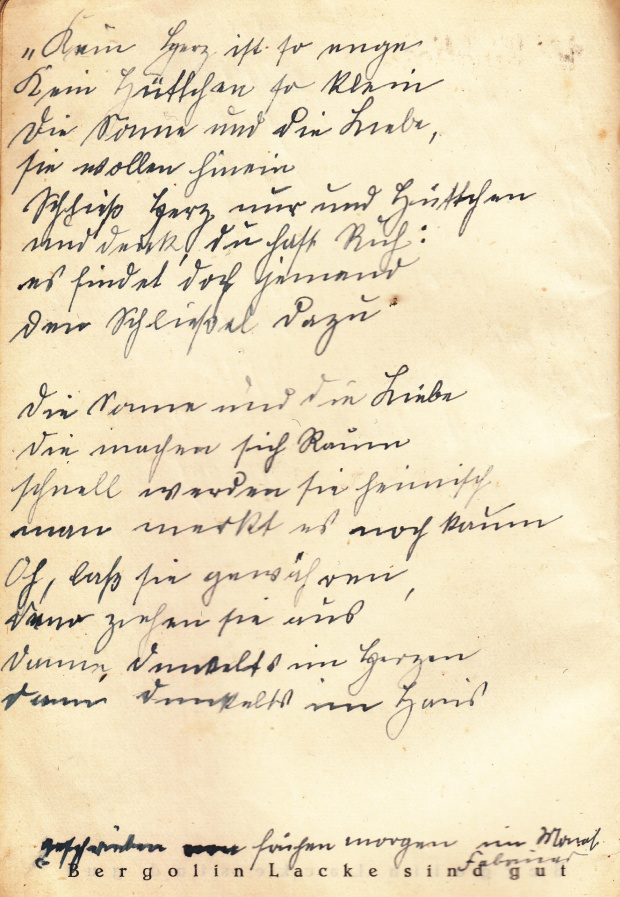 „Kein Herz ist so enge
Kein Hüttchen so klein
die Sonne und die Liebe,
sie wollen hinein
Schließ Herz nur und Hüttchen
und denk, du hast Ruh:
es findet doch jemand
den Schließel dazu"
die Sonne und die Liebe
die machen sich Raum
schnell werden sie heimisch
man merkt es noch kaum
Oh, laß sie gewähren,
denn ziehen sie aus
dann, dunkelts im Herzen
dann dunkelts im Haus
geschrieben morgen im Monat
Februar
Bergolin Lacke sind gut